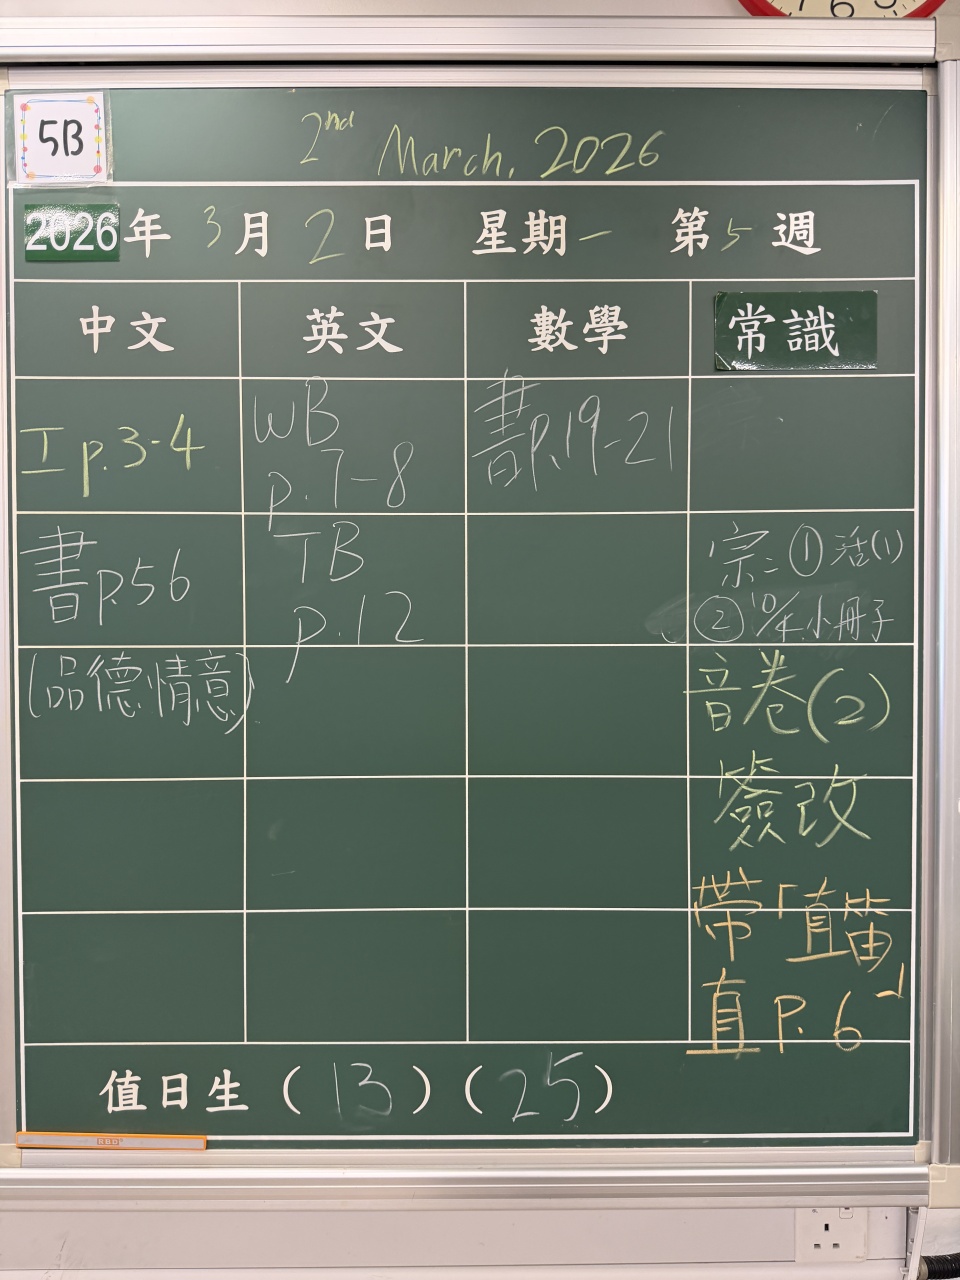 5B
2nd March, 2026
2026年 3月 2日 星期一 第5週
中文 英文 數學 常識
工 p.3-4
書 p.56
(品德情意)
WB
p.7-8
TB
p.12
書 p.19-21
宗: ① 活(1)
② 10/4 小冊子
音卷(2)
簽改
帶「直笛」
直 P. 6
值日生 (13) (25)